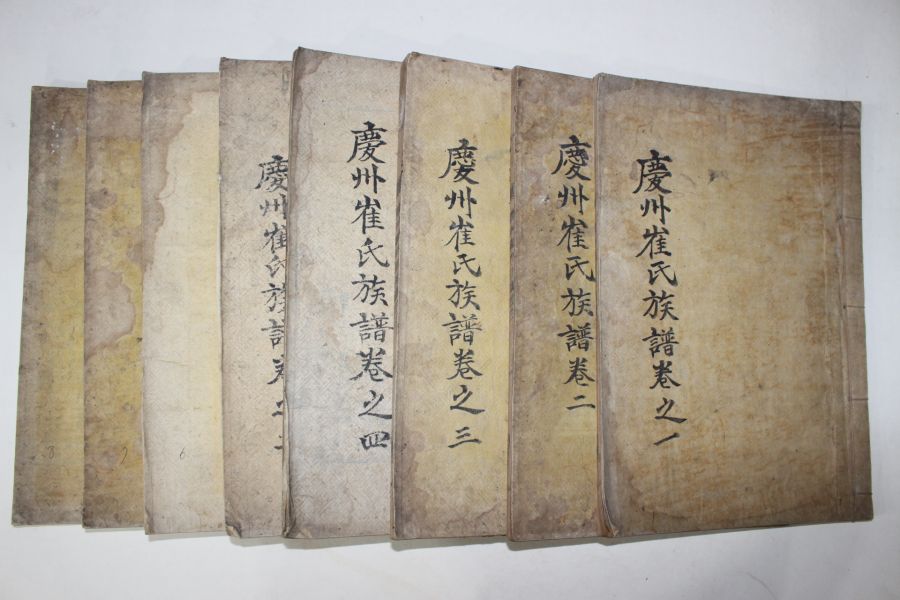 慶州崔氏族譜卷之一
慶州崔氏族譜卷二
慶州崔氏族譜卷之三
慶州崔氏族譜卷之四
慶州崔氏族譜卷之
6
7
8